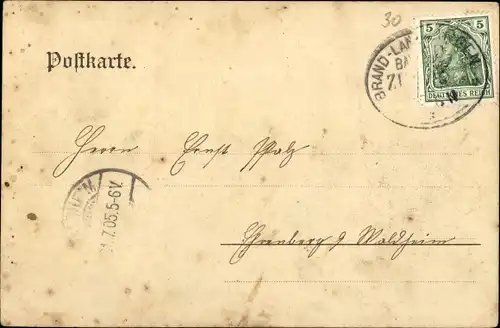 30
Postkarte.
BRAND-LAN
BA
5 5
DEUTSCHES REICH
Herrn Ernst Pfalz
21.7.05.5-6V.
Ehrenberg b Waldheim